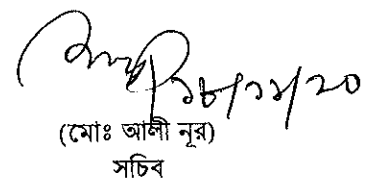 ১৮/১১/২০
(মোঃ আলী নূর)
সচিব